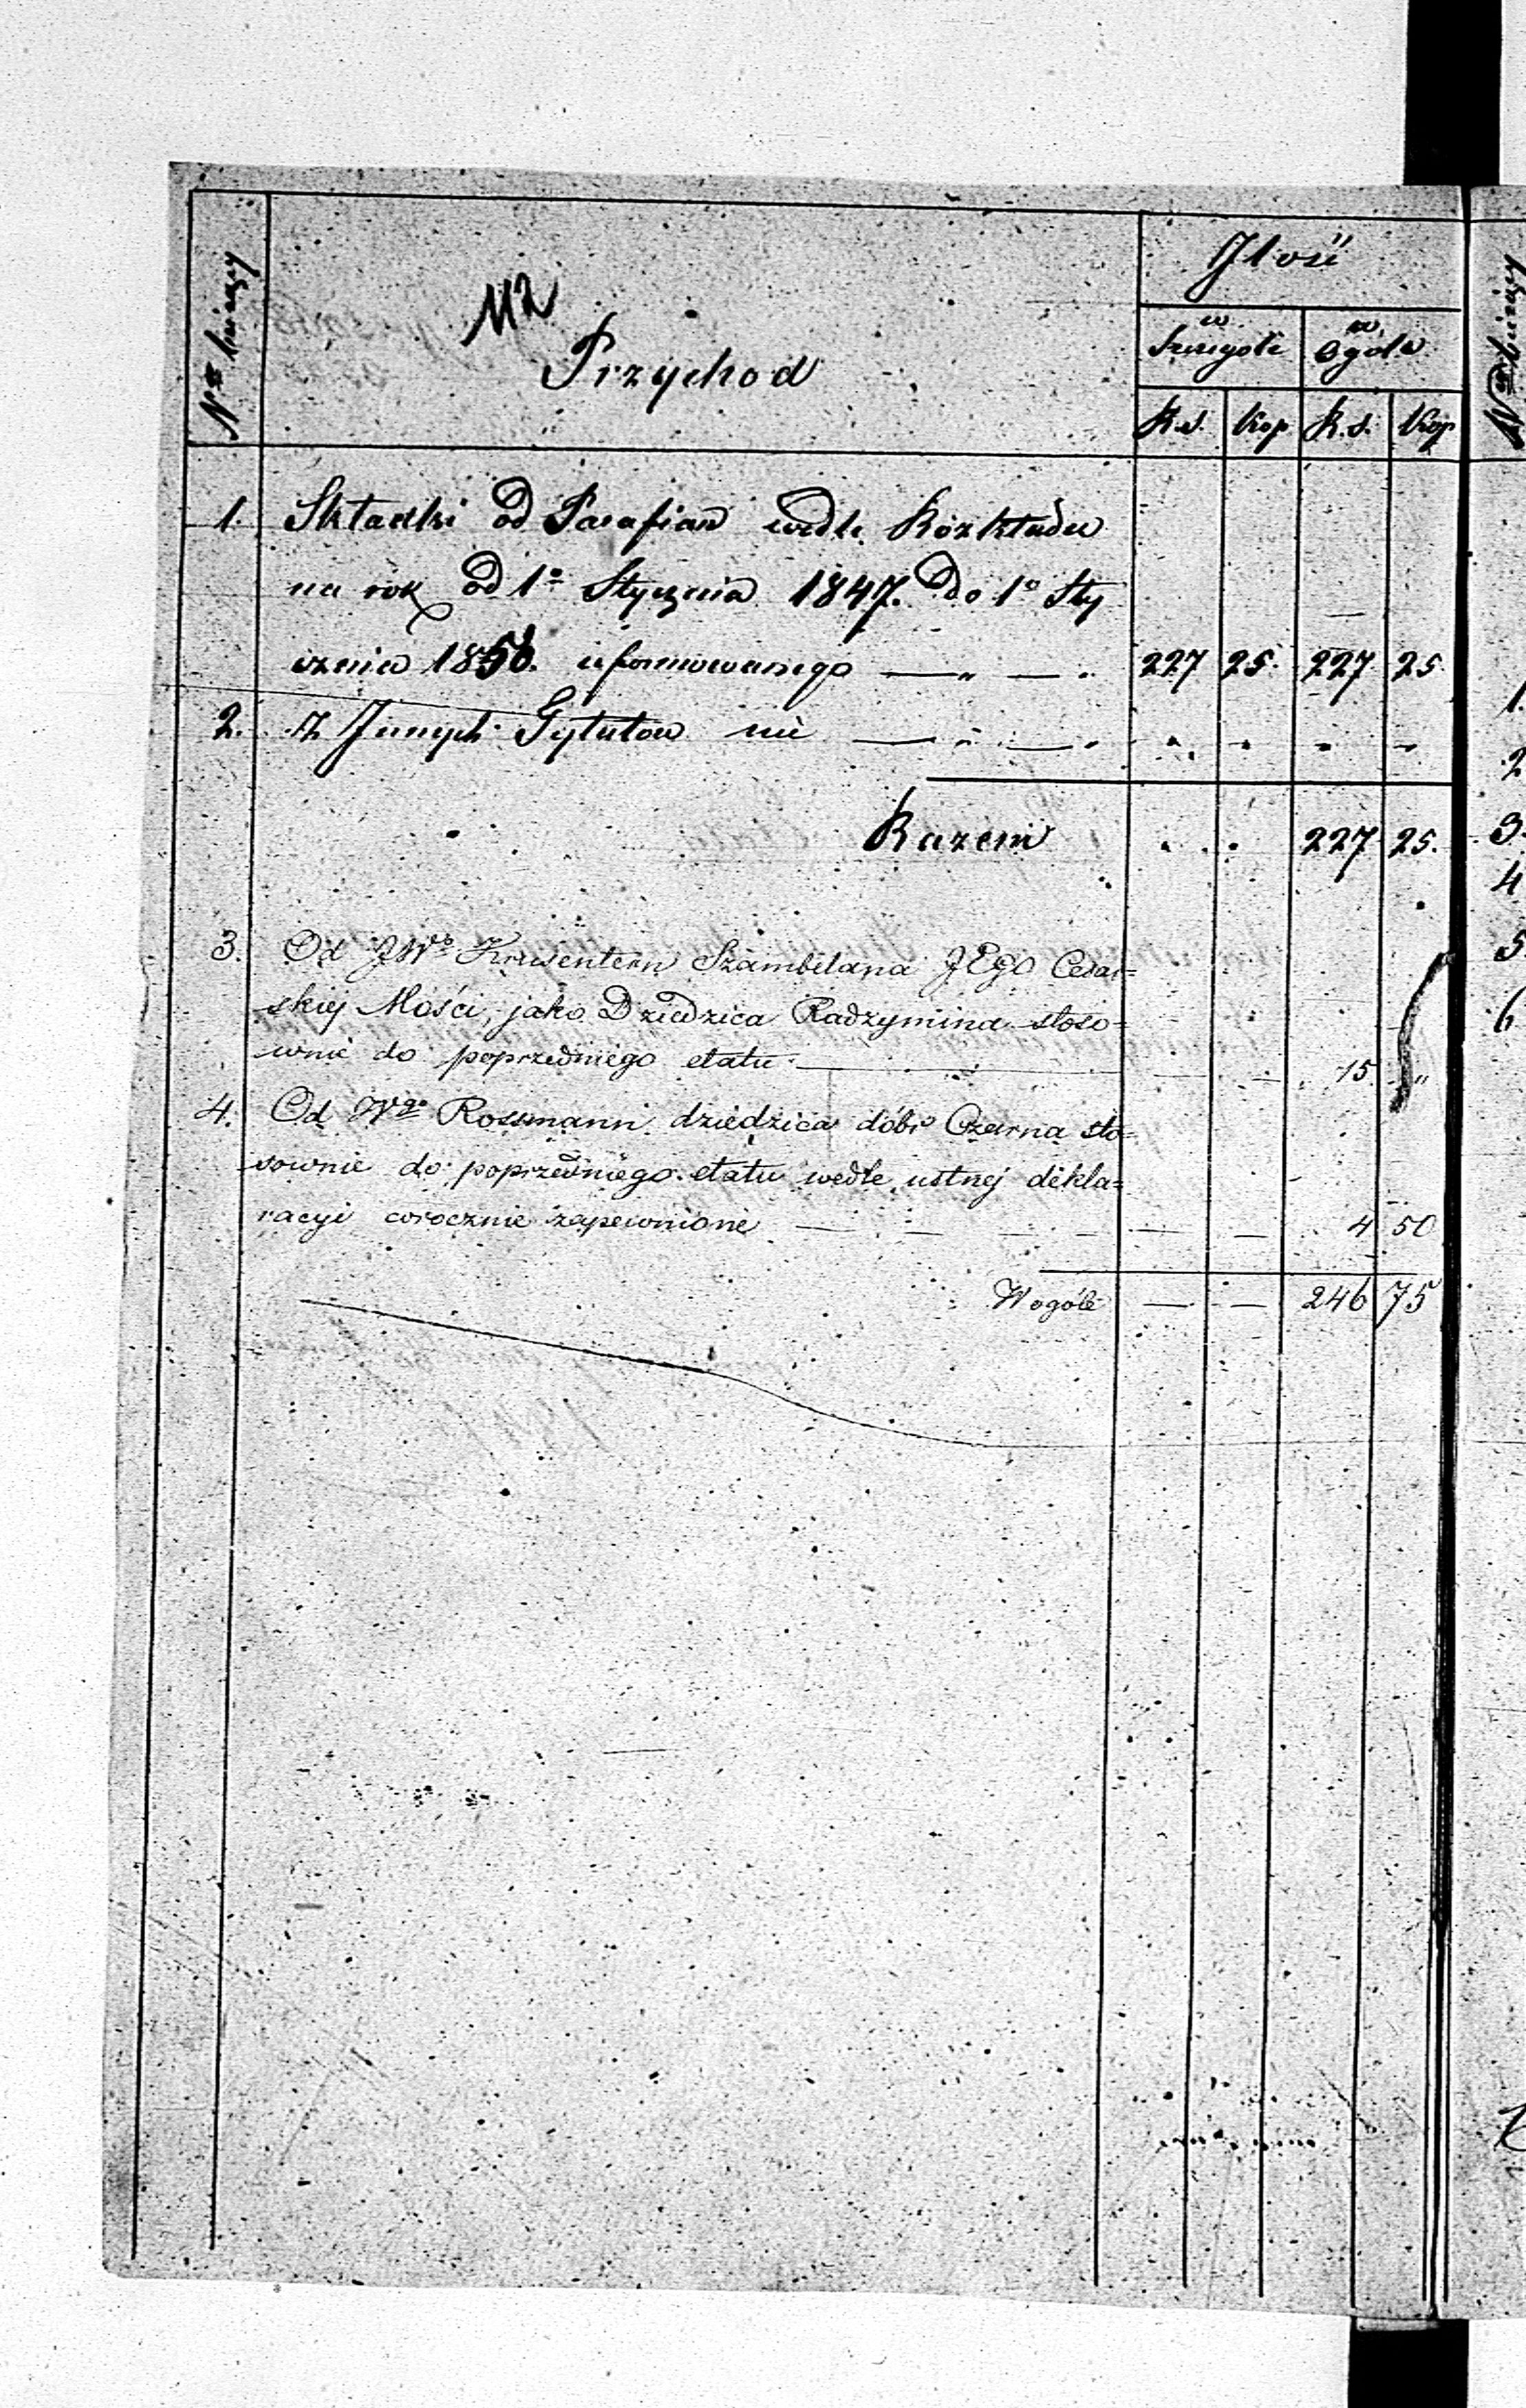 Nr bieżący
112
Przychod
Jlość
w Szczególe
w Ogóle
R.s. Kop R.s. Kop
1. Składki od Parafian wedle Rozkładu
na rok od 1o Stycznia 1847. do 1o Sty
cznia 1850. uformowanego — „ — . 227 25. 227 25
2. Z Jnnych Tytułow nie — „ — .
Razem . . 227 25.
3. Od JWo Krusentern Szambelana JEgo Cesar=
skiej Mości, jako Dziedzica Radzymina stoso=
wnie do poprzedniego etatu — 15. „
4. Od Wgo Rossmann dziedzica dóbr Czarna sto=
sownie do poprzedniego etatu wedle ustnej dekla=
racyi corocznie zapewnione — 4 50
Wogóle — — 246 75
1.
2
3.
4
5.
6